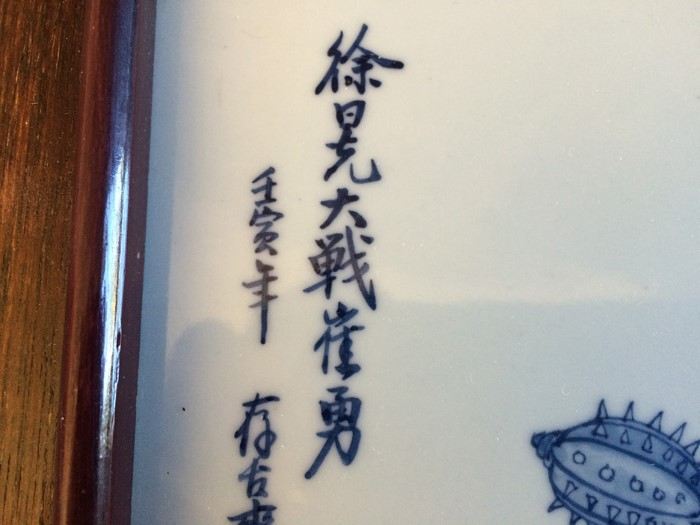 徐晃大戦崔勇
壬寅年 存古